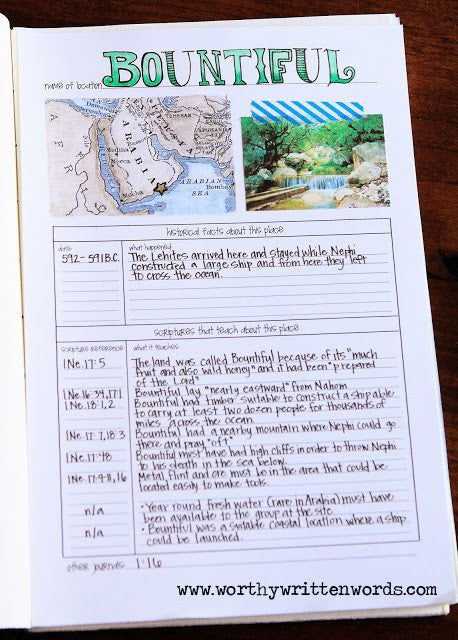 name of location: BOUNTIFUL
Damascus
TEHERAN
PERSIA
AFGHANISTAN
Medina
Mecca
ARABIA
ARABIAN
SEA
Bombay
historical facts about this place
date
what happened
592-591 B.C.
The Lehites arrived here and stayed while Nephi
constructed a large ship and from here they left
to cross the ocean.
scriptures that teach about this place
scripture reference
what it teaches
1 Ne. 17:5
The land was called Bountiful because of its "much
fruit and also wild honey" and it had been "prepared
of the Lord"
1 Ne. 16:34, 17:1
Bountiful lay "nearly eastward" from Nahom
1 Ne. 18:1,2
Bountiful had timber suitable to construct a ship able
to carry at least two dozen people for thousands of
miles across the ocean
1 Ne. 17:7, 18:3
Bountiful had a nearby mountain where Nephi could go
there and pray "oft"
1 Ne. 17:48
Bountiful must have had high cliffs in order to throw Nephi
to his death in the sea below.
1 Ne. 17:9-11, 16
Metal, flint and ore must be in the area that could be
located easily to make tools.
n/a
• Year round fresh water (rare in Arabia) must have
been available to the group at the site
n/a
• Bountiful was a suitable coastal location where a ship
could be launched.
other journals: 1:16
www.worthywrittenwords.com